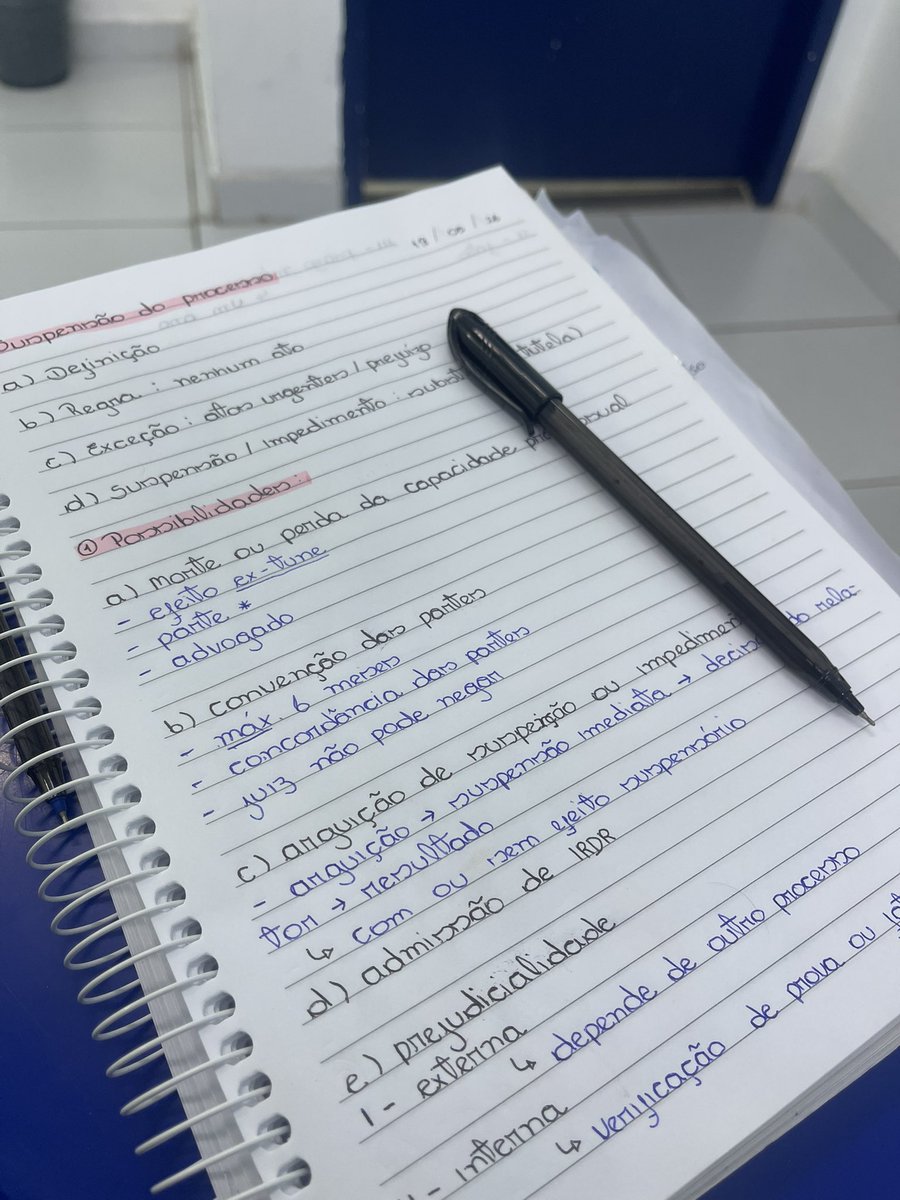 18/05/26
Suspensão do processo
a) Definição
b) Regra: nenhum ato
c) Exceção: atos urgentes/prejuízo
d) Suspensão/Impedimento: subst tutela)
① Possibilidades:
a) morte ou perda da capacidade pro ssual
- efeito ex-tunc
- parte *
- advogado
b) convenção das partes
- máx. 6 meses
- concordância das partes
- juiz não pode negar
c) arguição de suspeição ou impediment
- arguição → suspensão imediata → decis do rela-
tor → resultado
↳ com ou sem efeito suspensório
d) admissão de IRDR
e) prejudicialidade
I - externa
↳ depende de outro processo
II - interna
↳ verificação de prova ou